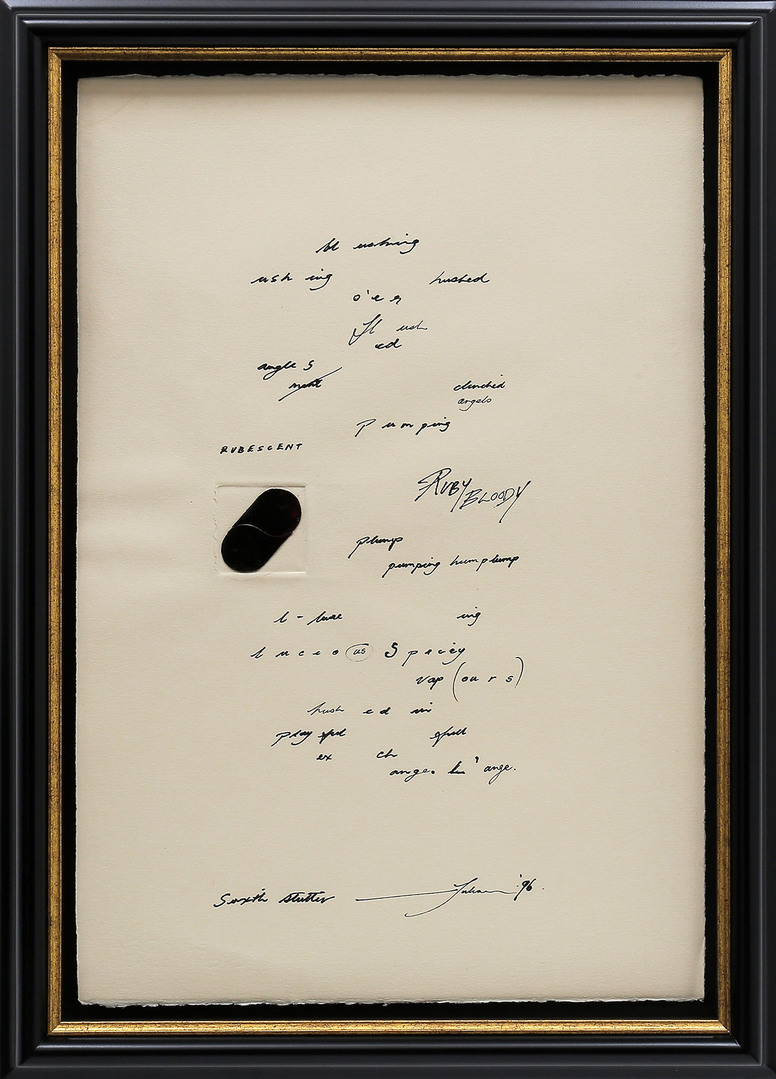 bl ushing
ush ing hushed
o'e r
fl ush
ed
angle s
clinched
angels
P um ping
RUBESCENT
RUBY
BLOODY
plump
pumping hum plump
l - luxe ing
l u c i o us S p i c e y
vap (ou r s)
hush e d in
play ful
ex ch
ange. l' ange.
Sixth stutter '96